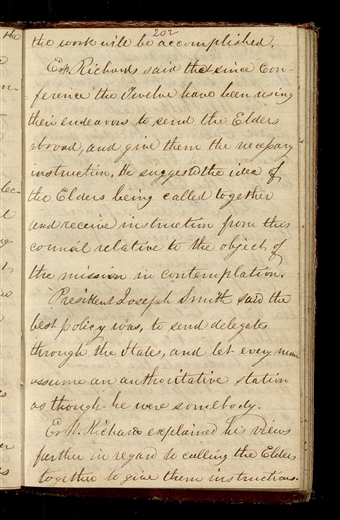 202
the work will be accomplished.
Er W. Richards said that since Con-
ference the Twelve have been using
their endeavors to send the Elders
abroad, and give them the necessary
instruction, He suggested the idea of
the Elders being called together
and receive instruction from this
council relative to the object of
the mission in contemplation.
President Joseph Smith said the
best policy was, to send delegates
through the State, and let every man
assume an authoritative station
as though he were somebody.
Er W. Richards explained his views
further in regard to calling the Elders
together to give them instructions.